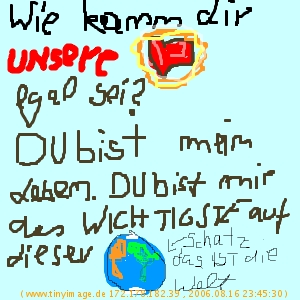 Wie kamm dir
UNSERE
egal sei?
DU bist mein
Leben. DU bist mir
das WICHTIGSTE auf
dieser
schatz
das IST die
welt
www.tinyimage.de 2006.08.16 23:45:30)